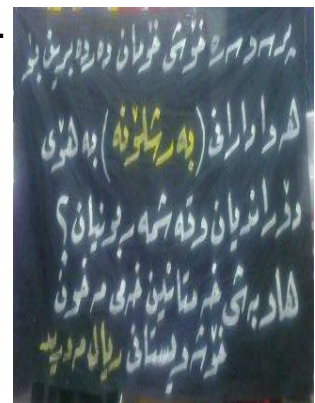 پرسە و سەرە خۆشی خۆمان دەردەبڕین بۆ
هەوادارانی (بەرشلۆنە) بە هۆی
دۆڕاندیان وقەشمەر بونیان؟
هاوبەشی خەمتانین خەمی مەخۆن
خۆشەویستانی ریال مەدرید